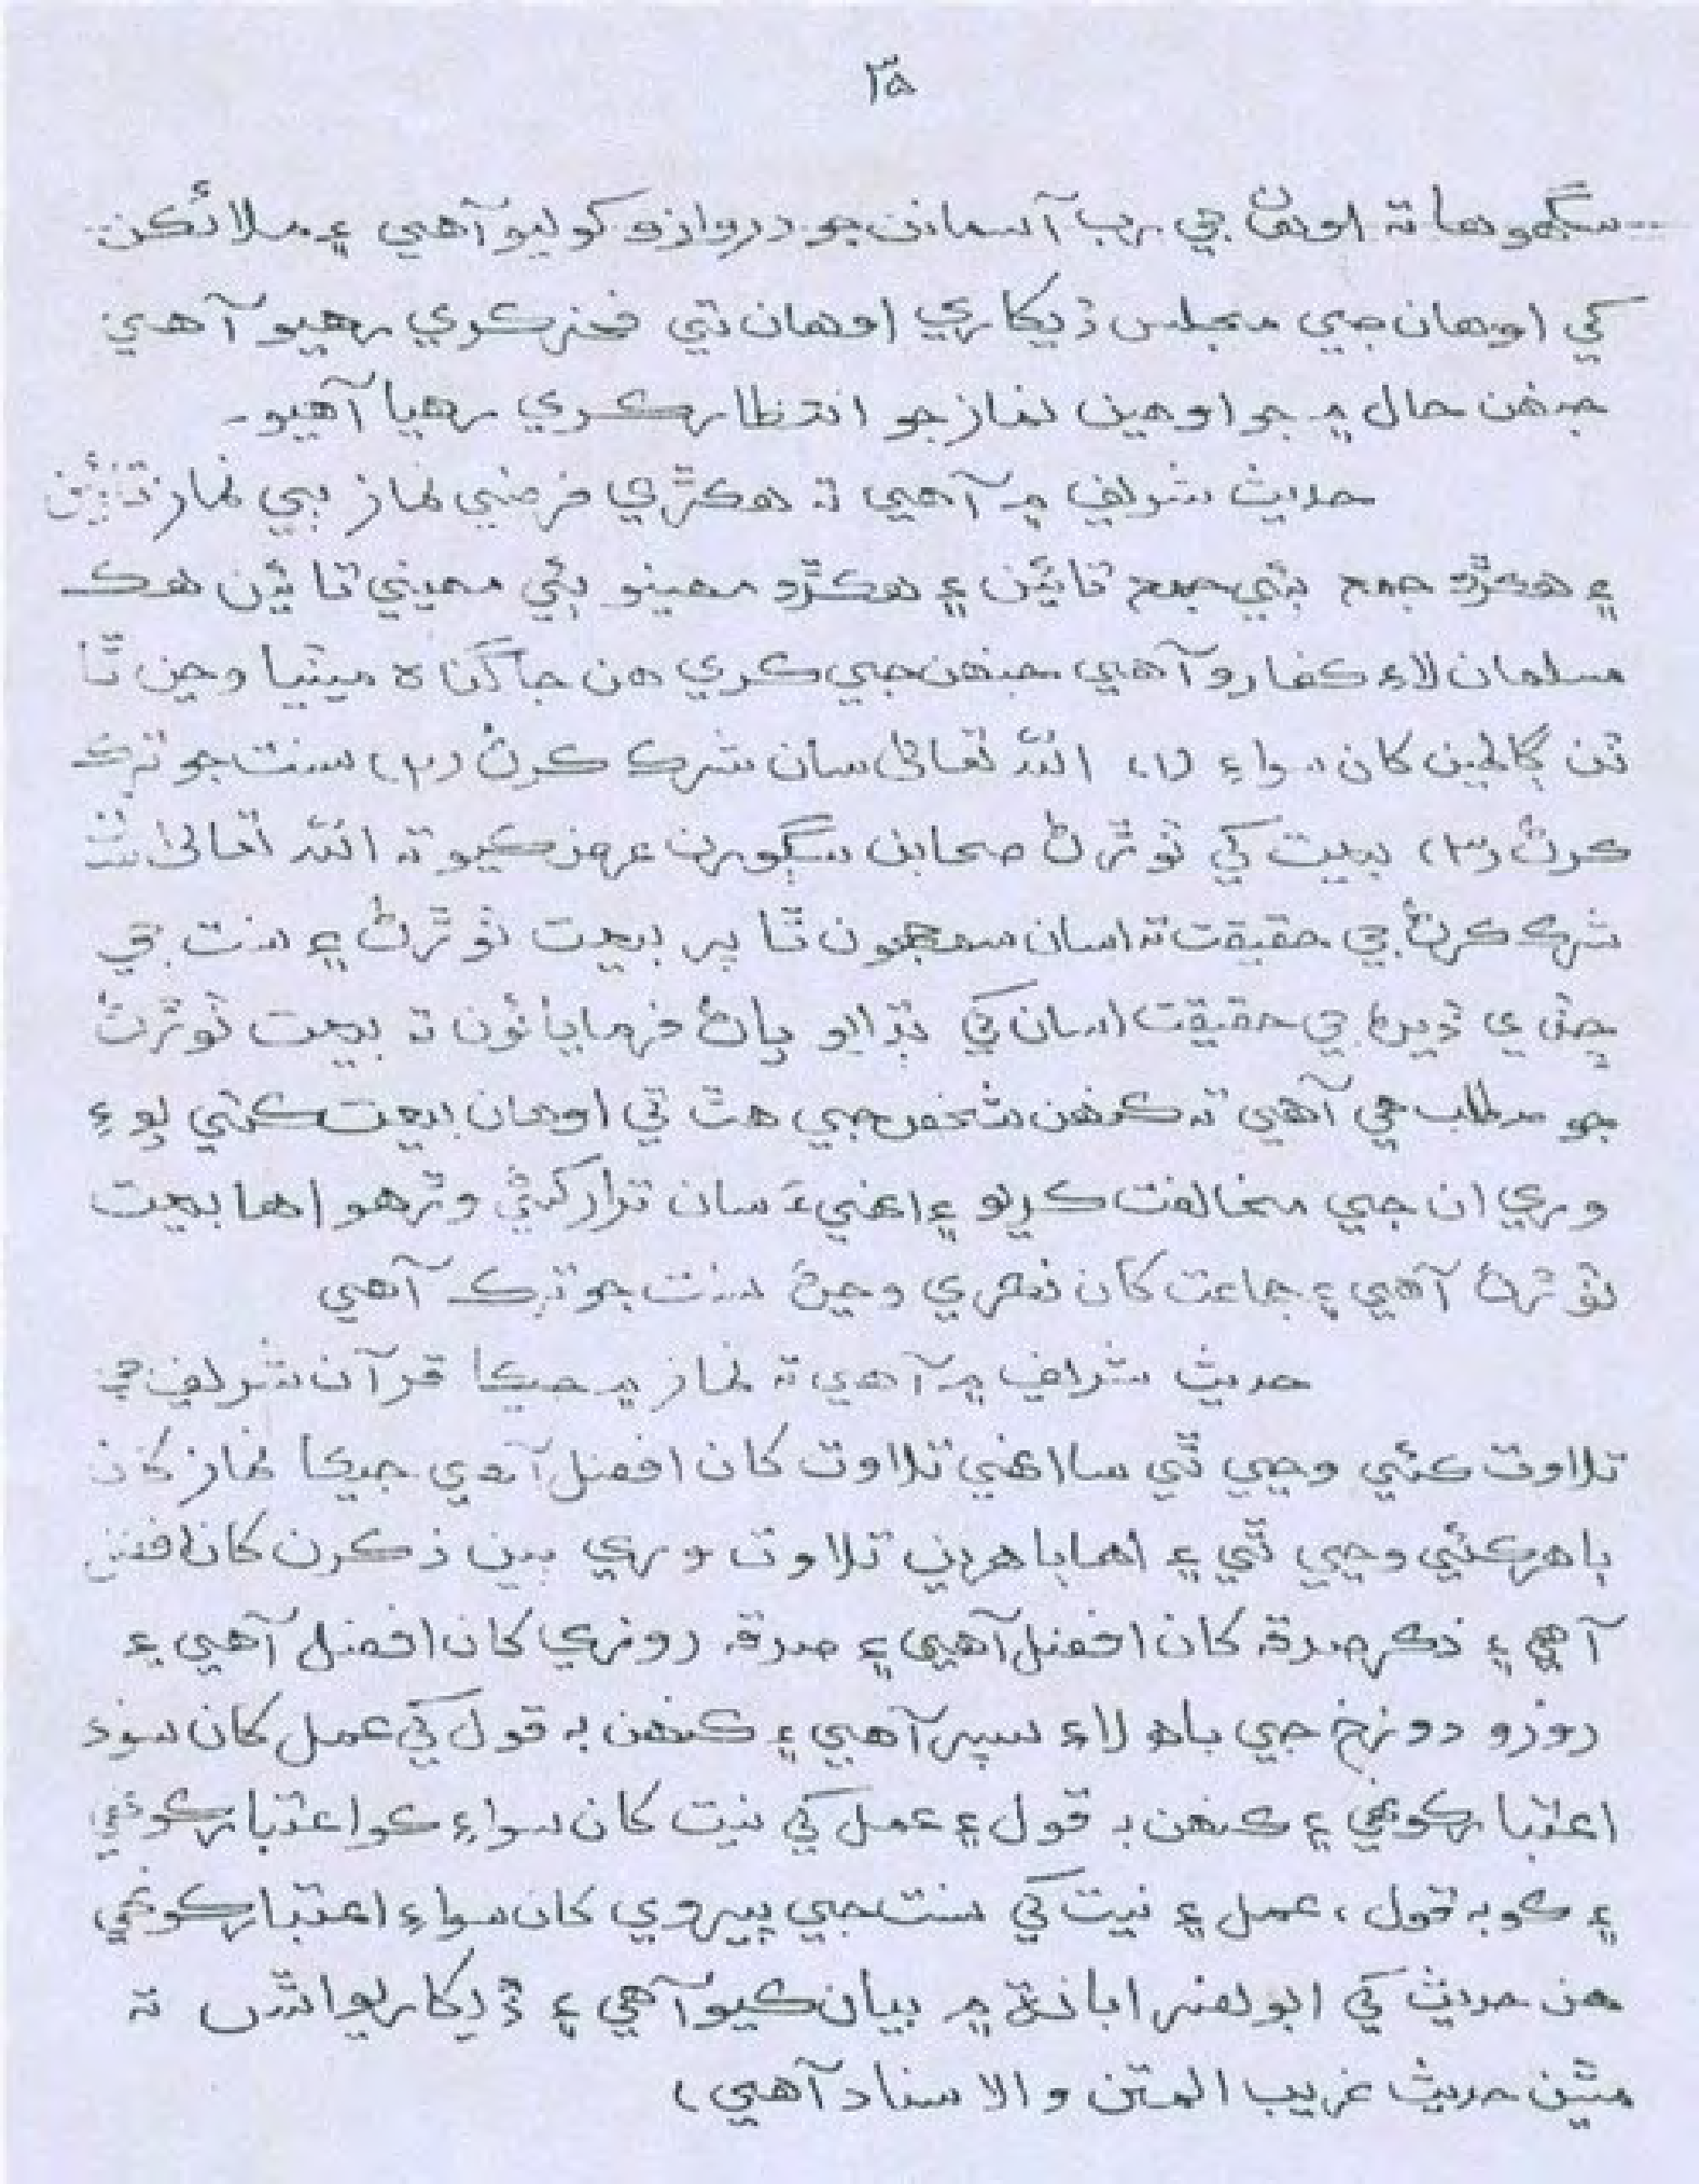 ٣٥
سگهو ها ته اوهان جي رب آسمانن جو دروازو کوليو آهي ۽ ملائڪن
کي اوهان جي مجلس ڏيکاري اوهان تي فخر ڪري رهيو آهي
جنهن حال ۾ جو اوهين نماز جو انتظار ڪري رهيا آهيو۔
حديث شريف ۾ آهي ته هڪڙي فرضي نماز ٻي نماز تائين
۽ هڪڙو جمع ٻئي جمع تائين ۽ هڪڙو مهينو ٻئي مهيني تائين هڪ
مسلمان لاءِ ڪفارو آهي جنهن جي ڪري هن جا گناه ميٽيا وڃن ٿا
ٽن ڳالهين کان سواءِ (١) الله تعاليٰ سان شرڪ ڪرڻ (٢) سنت جو ترڪ
ڪرڻ (٣) بيعت کي ٽوڙڻ صحابن سڳورن عرض ڪيو ته الله تعاليٰ سان
شرڪ ڪرڻ جي حقيقت ته اسان سمجهون ٿا پر بيعت ٽوڙڻ ۽ سنت جي
ڇڏي ڏيڻ جي حقيقت اسان کي ٻڌايو پاڻ فرمايائون ته بيعت ٽوڙڻ
جو مطلب هي آهي ته ڪنهن شخص جي هٿ تي اوهان بيعت ڪئي يو ۽
وري ان جي مخالفت ڪريو ۽ انهيءَ سان ترار کڻي وڙهو اها بيعت
ٽوڙڻ آهي ۽ جماعت کان نڪري وڃڻ سنت جو ترڪ آهي
حديث شريف ۾ آهي ته نماز ۾ جيڪا قرآن شريف جي
تلاوت ڪئي وڃي ٿي سا انهي تلاوت کان افضل آهي جيڪا نماز کان
ٻاهر ڪئي وڃي ٿي ۽ اها ٻاهرين تلاوت وري ٻين ذڪرن کان افضل
آهي ۽ ذڪر صدقہ کان افضل آهي ۽ صدقہ روزي کان افضل آهي ۽
روزو دوزخ جي باهہ لاءِ سپر آهي ۽ ڪنهن بہ قول کي عمل کان سواءِ
اعتبار ڪونهي ۽ ڪنهن بہ قول ۽ عمل کي نيت کان سواءِ ڪو اعتبار ڪونهي
۽ ڪو بہ قول، عمل ۽ نيت کي سنت جي پيروي کان سواءِ اعتبار ڪونهي
هن حديث کي ابو نصر ابانة ۾ بيان ڪيو آهي ۽ ڏيکاريو اٿس ته
متن حديث غريب المتن والاسناد آهي)